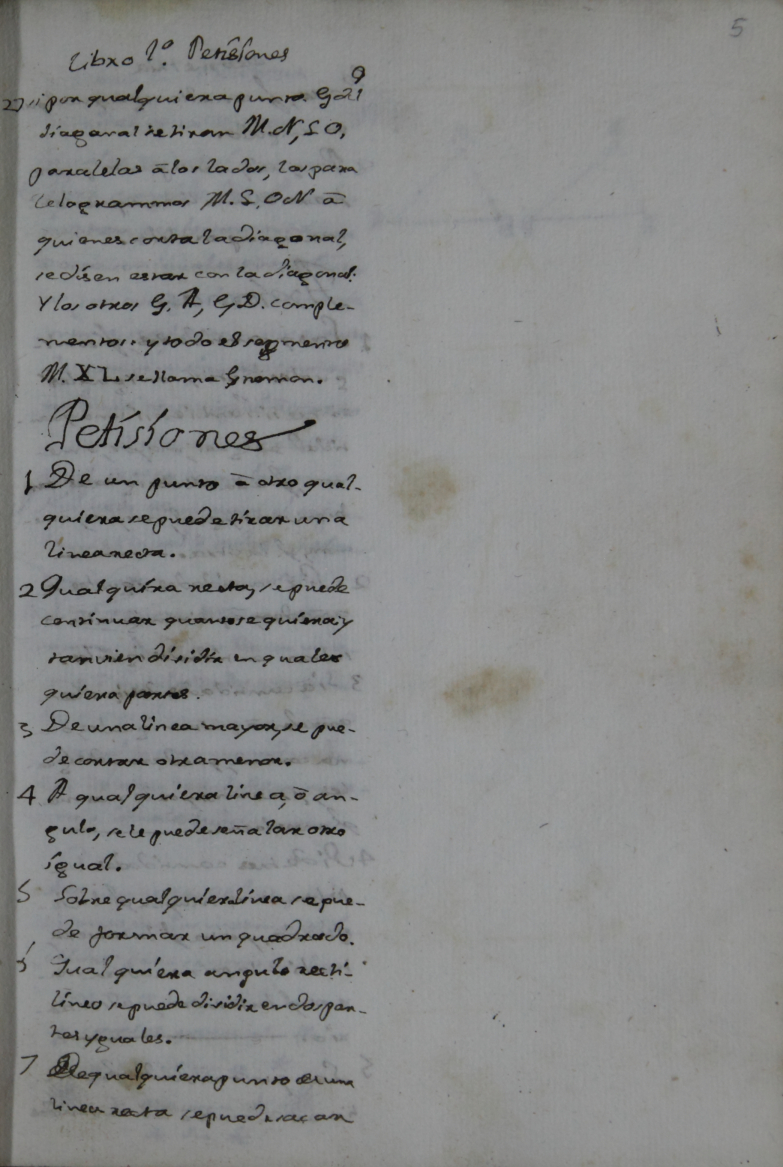 5
Libro 1º. Petisiones
9
27 si por qualquiera punto G del
diagonal se tiran M.N, S O,
paralelas â los lados, los para
lelogrammos M. S, O N â
quienes corta la diagonal,
se disen estar con la diagonal.
Y los otros G. A, G D. comple-
mentos. y todo el segmento
M. X L se llama Gnomon.
Petisiones
1 De un punto â otro qual-
quiera se puede tirar una
linea recta.
2 Qualquira recta, se puede
continuar quanto se quiera, y
tanvien dividir en quales
quiera partes.
3 De una linea mayor, se pue-
de cortar otra menor.
4 A qualquiera linea, ô an-
gulo, se le puede señalar otro
igual.
5 Sobre qualquier linea se pue-
de formar un quadrado.
Qualquiera angulo recti-
líneo se puede dividir en dos par-
tes yguales.
7 De qualquiera punto de una
linea recta se puede sacar